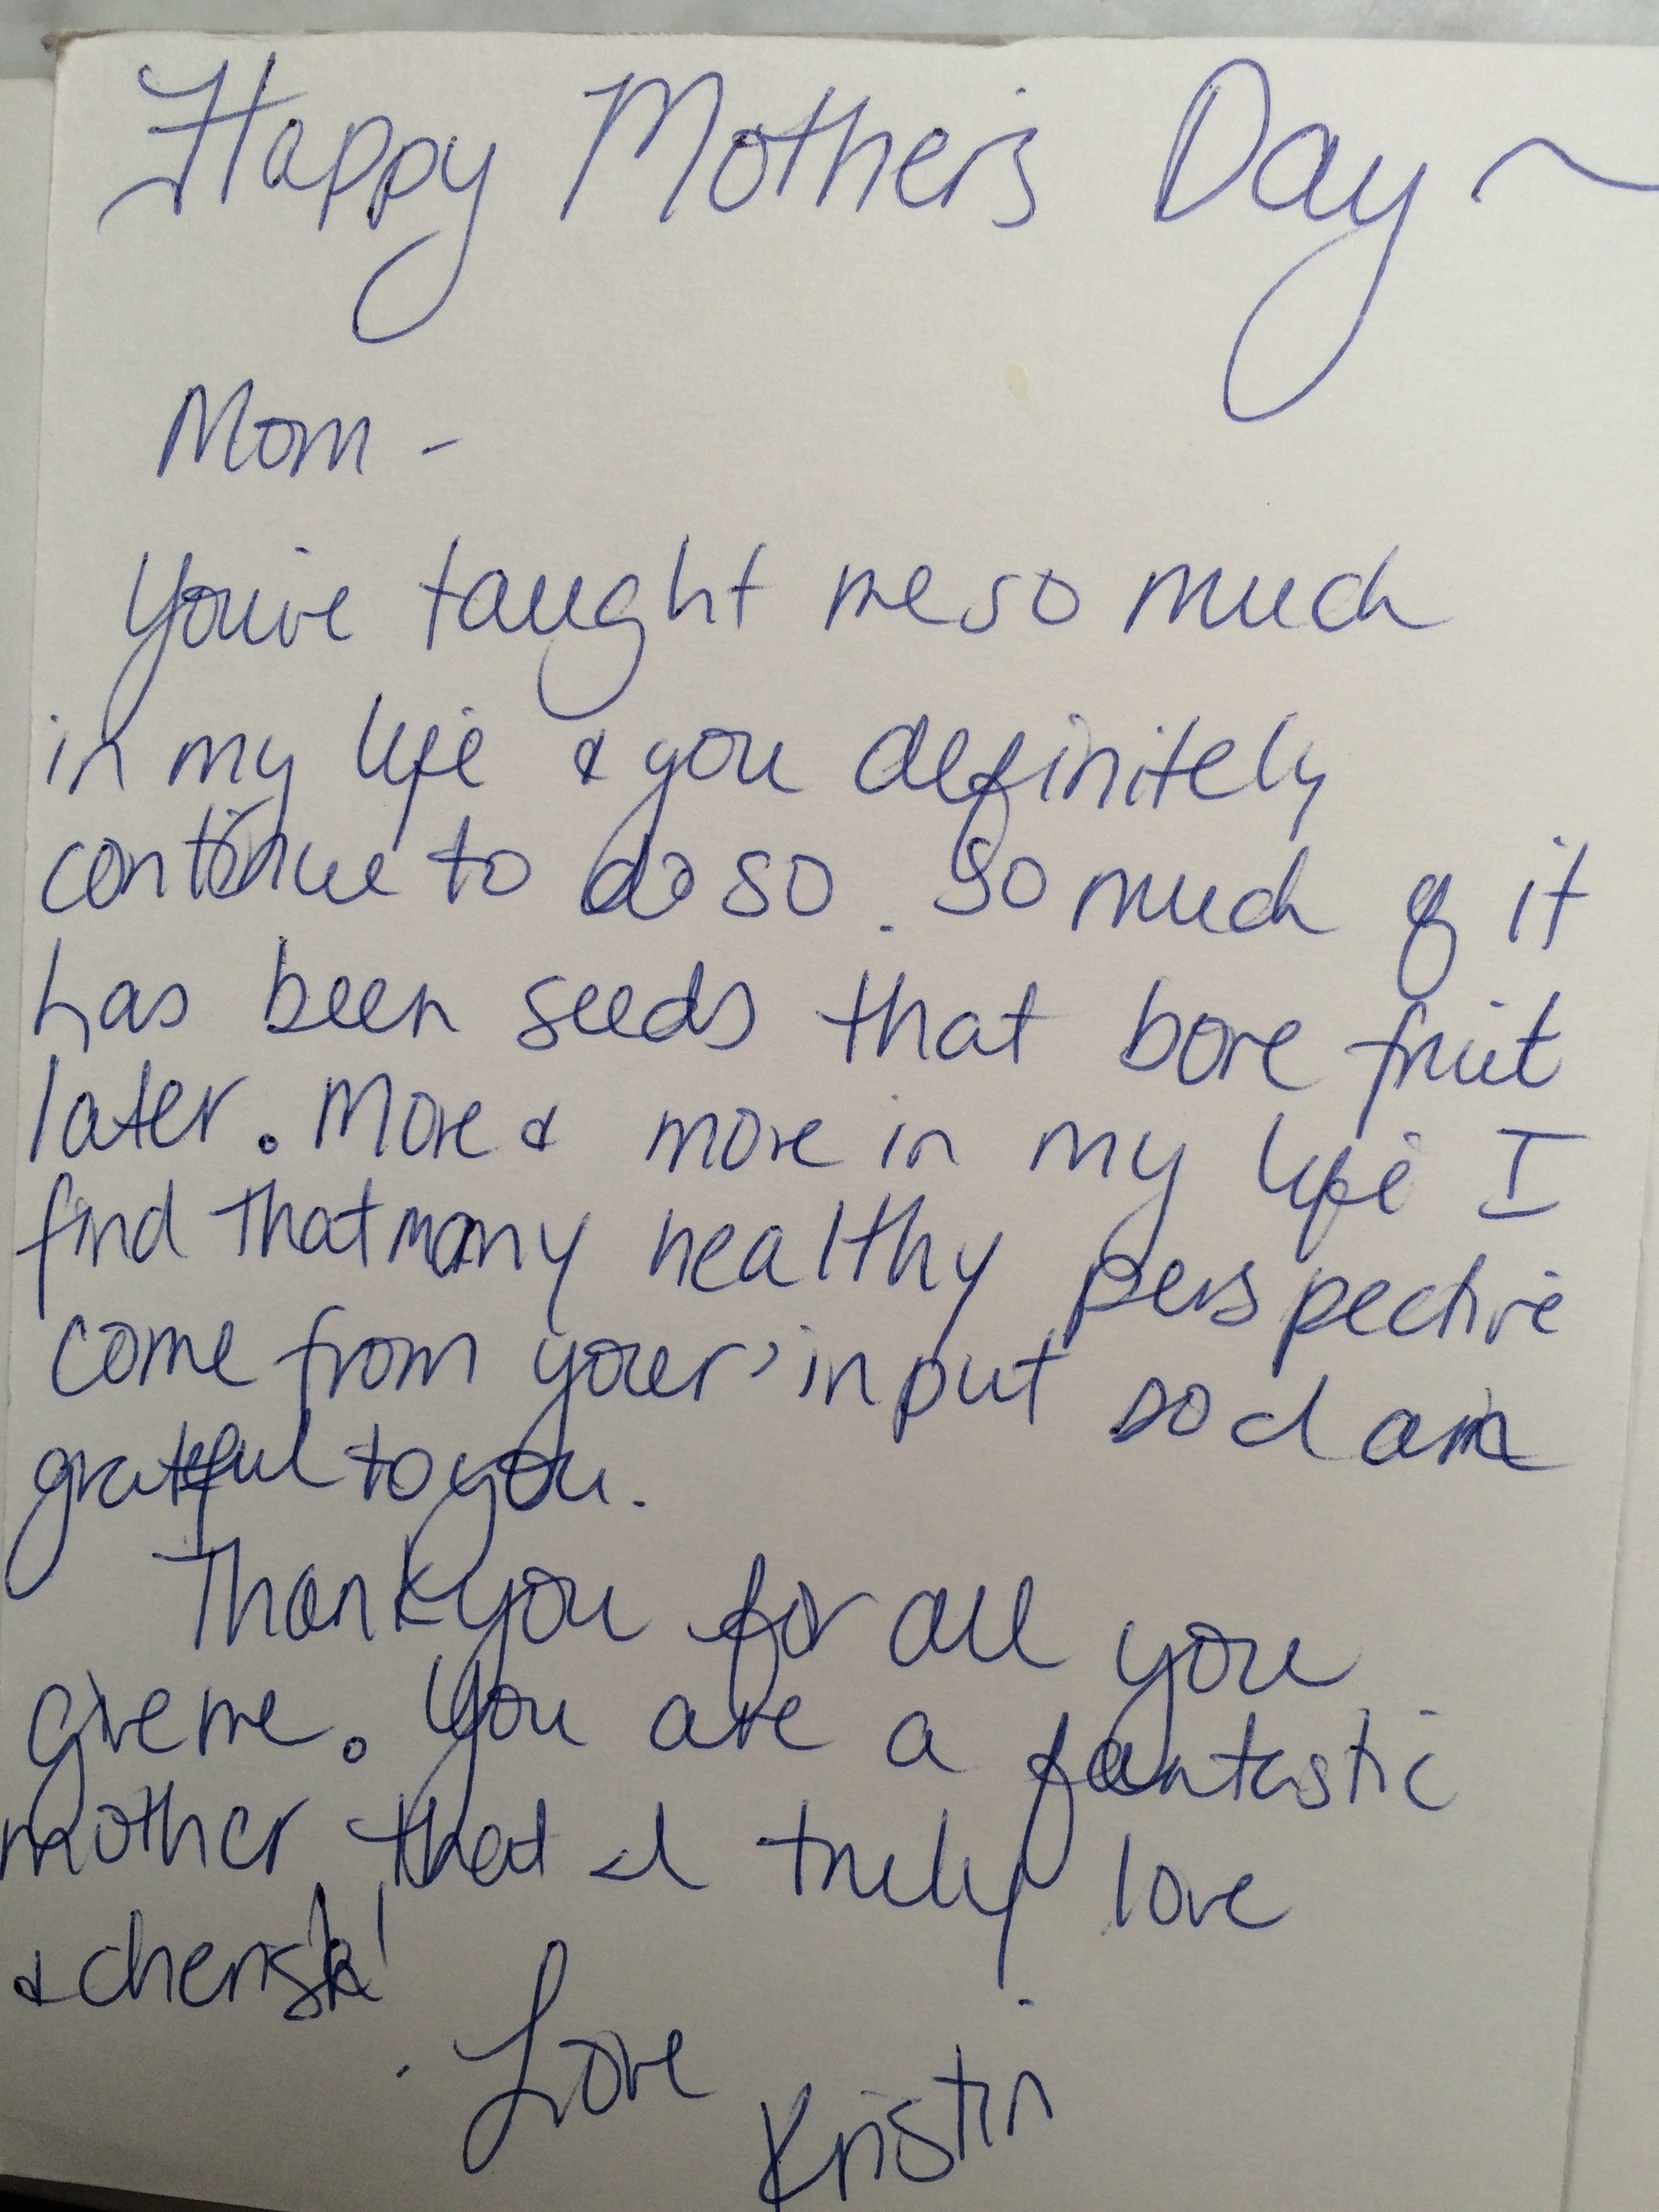 Happy Mother's Day ~
Mom -
You've taught me so much
in my life & you definitely
continue to do so. So much of it
has been seeds that bore fruit
later. More & more in my life I
find that many healthy perspective
come from your input so I am
grateful to you.
Thank you for all you
give me. You are a fantastic
mother that I truly love
& cherish!
Love
Kristin